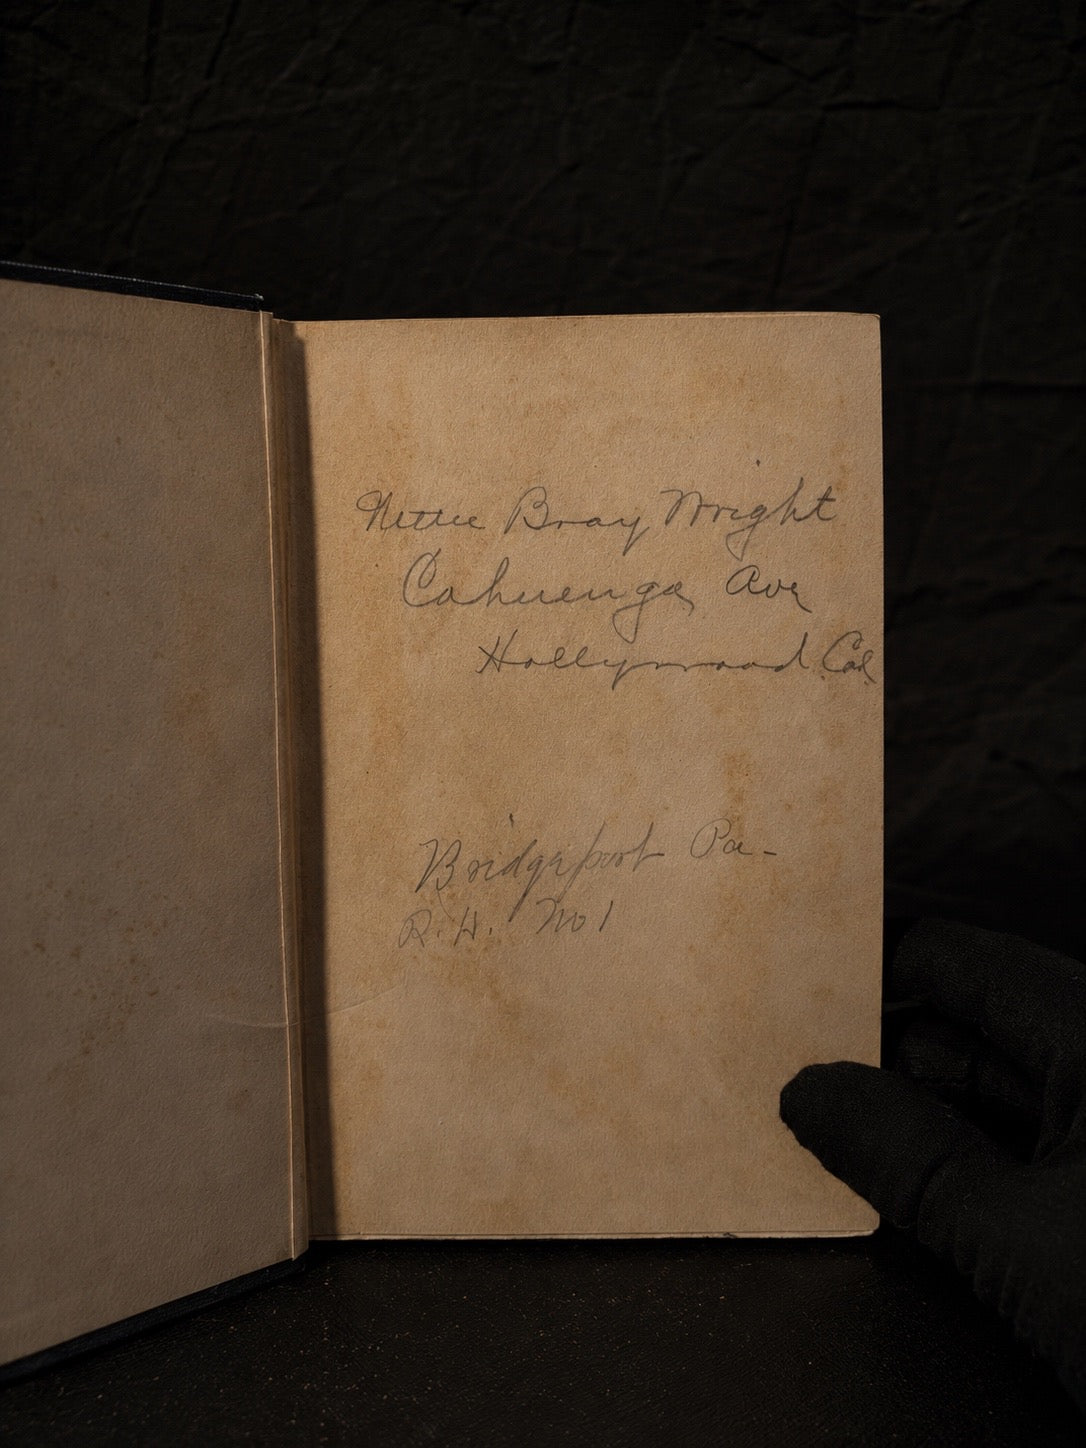 Nettie Bray Wright
Cahuenga Ave
Hollywood Cal.
Bridgeport Pa-
R.H. No 1